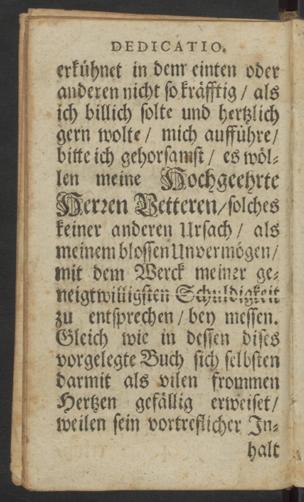 DEDICATIO.
erkühnet in dem einten oder
anderen nicht so kräfftig / als
ich billich solte und hertzlich
gern wolte / mich aufführe /
bitte ich gehorsamst / es wöl-
len meine Hochgeehrte
Herren Vetteren / solches
keiner anderen Ursach / als
meinem blossen Unvermögen /
mit dem Werck meiner ge-
neigtwilligsten Schuldigkeit
zu entsprechen / bey messen.
Gleich wie in dessen dises
vorgelegte Buch sich selbsten
darmit als vilen frommen
Hertzen gefällig erweiset /
weilen sein vortreflicher In-
halt